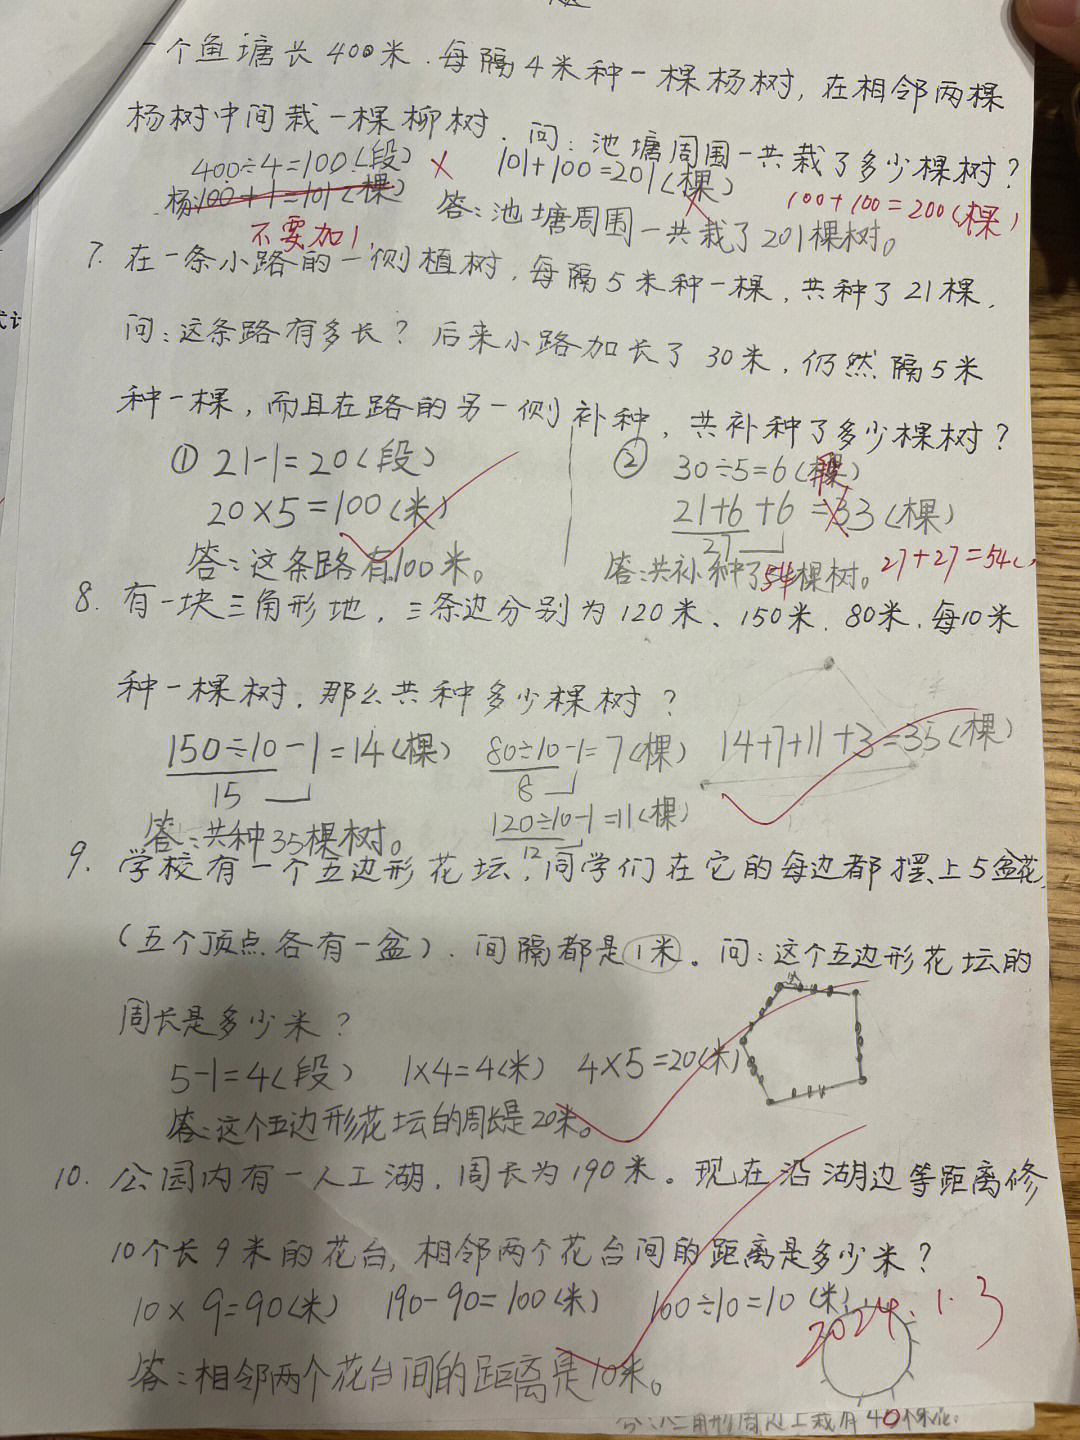 一个鱼塘长400米.每隔4米种一棵杨树,在相邻两棵
杨树中间栽一棵柳树.问:池塘周围一共栽了多少棵树?
400÷4=100(段) × 101+100=201(棵)
杨:100+1=101(棵) 答:池塘周围一共栽了201棵树。 100+100=200(棵)
不要加1.
7. 在一条小路的一侧植树,每隔5米种一棵,共种了21棵,
问:这条路有多长?后来小路加长了30米,仍然隔5米
种一棵,而且在路的另一侧补种,共补种了多少棵树?
① 21-1=20(段) ② 30÷5=6(棵)
20×5=100(米) 21+6+6=33(棵)
27
答:这条路有100米。 答:共补种了54棵树。 27+27=54(
8. 有一块三角形地,三条边分别为120米、150米.80米.每10米
种一棵树.那么共种多少棵树?
150÷10-1=14(棵) 80÷10-1=7(棵) 14+7+11+3=35(棵)
15 8
答:共种35棵树。 120÷10-1=11(棵)
12
9. 学校有一个五边形花坛,同学们在它的每边都摆上5盆花,
(五个顶点各有一盆).间隔都是1米。问:这个五边形花坛的
周长是多少米?
5-1=4(段) 1×4=4(米) 4×5=20(米)
答:这个五边形花坛的周长是20米。
10. 公园内有一人工湖,周长为190米。现在沿湖边等距离修
10个长9米的花台,相邻两个花台间的距离是多少米?
10×9=90(米) 190-90=100(米) 100÷10=10(米)
2024.1.3
答:相邻两个花台间的距离是10米。